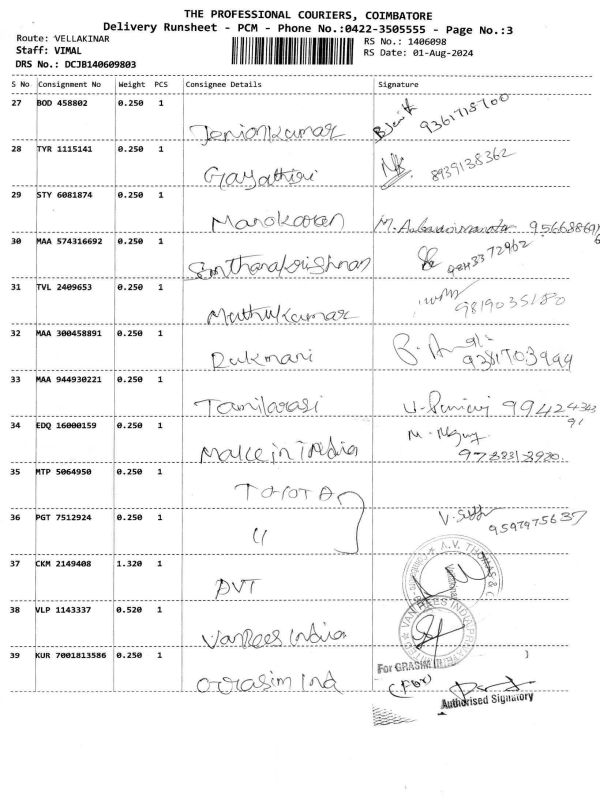 THE PROFESSIONAL COURIERS, COIMBATORE
Delivery Runsheet - PCM - Phone No.:0422-3505555 - Page No.:3
Route: VELLAKINAR
RS No.: 1406098
Staff: VIMAL
RS Date: 01-Aug-2024
DRS No.: DCJB140609803
S No Consignment No Weight PCS Consignee Details Signature
27 BOD 458802 0.250 1 Jenionkumar 9361715700
28 TYR 1115141 0.250 1 Gayathiri 8939138362
29 STY 6081874 0.250 1 Manokaran
30 MAA 574316692 0.250 1 Santhanakrishnan
31 TVL 2409653 0.250 1 Muthukumar 9819035180
32 MAA 300458891 0.250 1 Rukmani 9281703999
33 MAA 944930221 0.250 1 Tamilarasi 99424343
91
34 EDQ 16000159 0.250 1 Make in India
35 MTP 5064950 0.250 1 TOYOTA
36 PGT 7512924 0.250 1 " 9597975637
37 CKM 2149408 1.320 1 PVT A.V. THOMAS & C
38 VLP 1143337 0.520 1 VanRees India VAN REES INDIA PRIVATE LIMITED
39 KUR 7001813586 0.250 1 Grasim Ind For GRASIM
(For)
Authorised Signatory